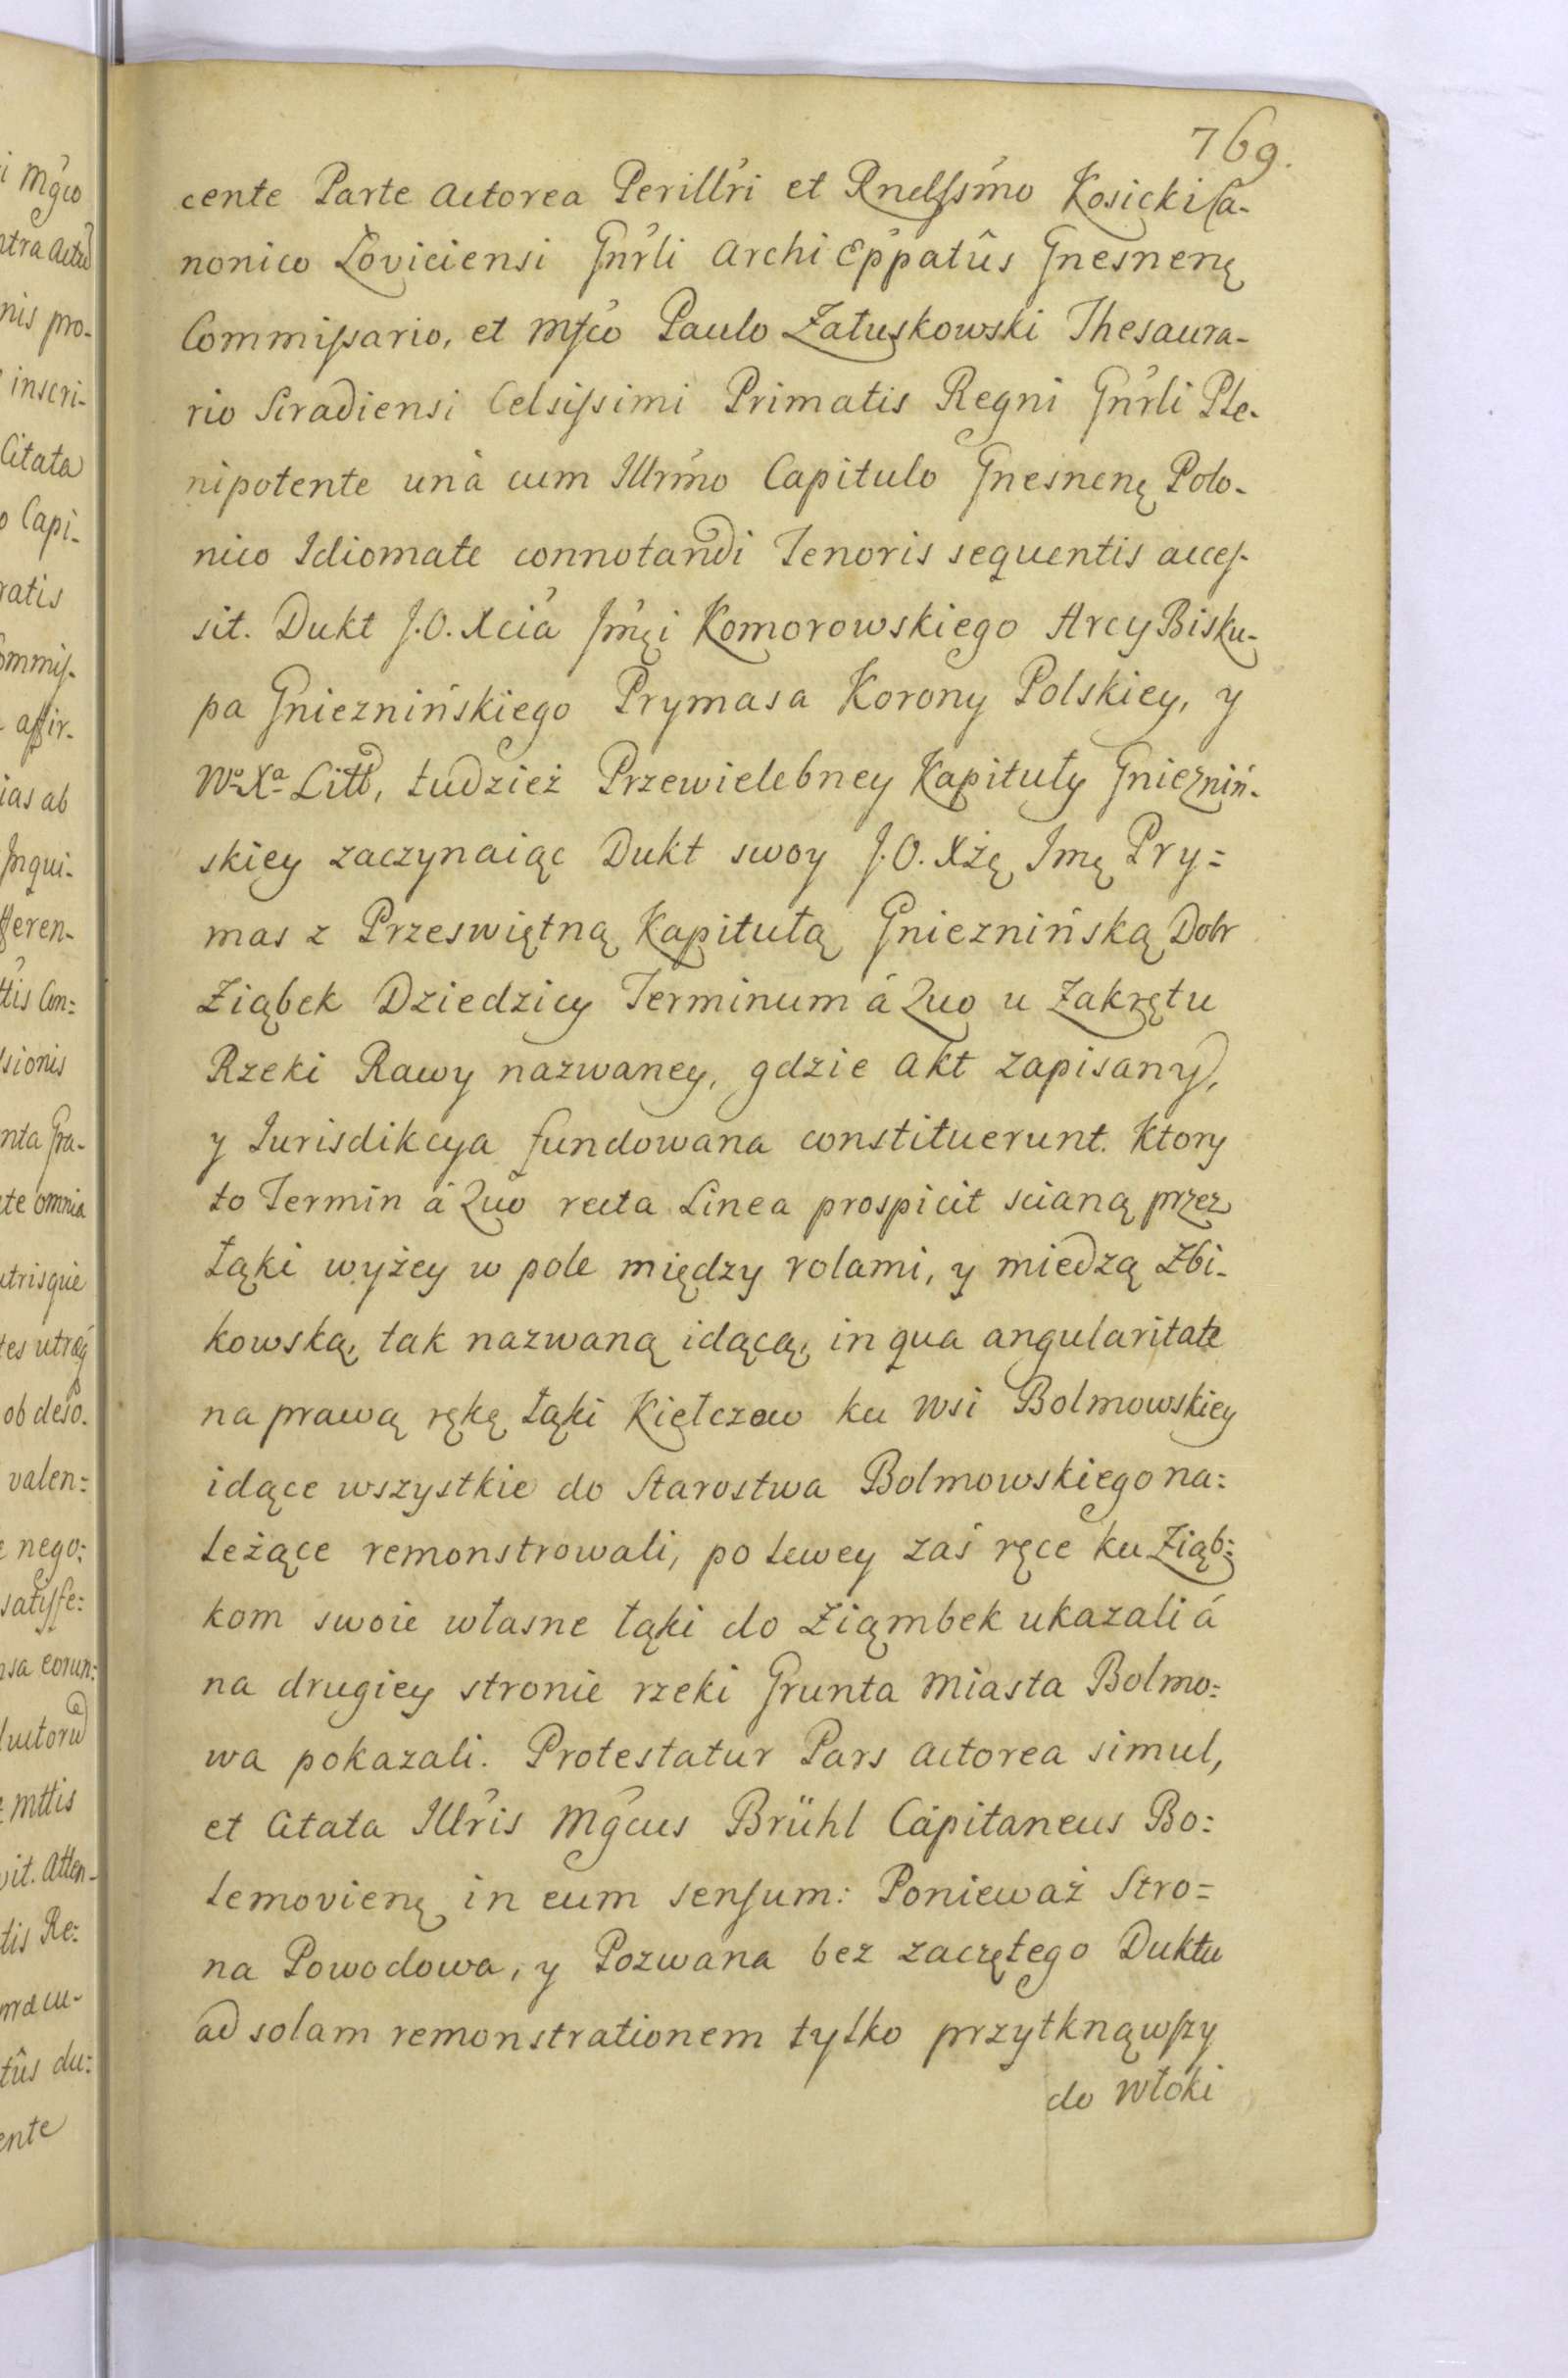 769.
cente Parte Actorea Perillri et Rndssmo Kosicki Ca-
nonico Łoviciensi Gnrli Archi Eppatûs Gnesnenę
Commissario, et Mfco Paulo Załuskowski Thesaura-
rio Siradiensi Celsissimi Primatis Regni Gnrli Ple-
nipotente unà cum Illrmo Capitulo Gnesnenę Polo-
nico Idiomate connotandi Tenoris sequentis acces-
sit. Dukt J.O. Xcia Jmęi Komorowskiego Arcy Bisku-
pa Gnieznińskiego Prymasa Korony Polskiey, y
Wº Xª Litt, tudzież Przewielebney Kapituły Gniezniń-
skiey zaczynaiąc Dukt swoy J.O. Xżę Jmę Pry=
mas z Przeswiętną Kapitułą Gnieznińską Dobr
Ziąbek Dziedzicy Terminum á Quo u Zakrętu
Rzeki Rawy nazwaney, gdzie Akt zapisany,
y Iurisdikcya fundowana constituerunt. Ktory
to Termin á Quo recta Linea prospicit scianą przez
łąki wyżey w pole między rolami, y miedzą Zbi-
kowską, tak nazwaną idącą, in qua angularitate
na prawą rękę łąki Kiełczew ku Wsi Bolmowskiey
idące wszystkie do Starostwa Bolmowskiego na=
leżące remonstrowali, po lewey zaś ręce ku Ziąb=
kom swoie własne łąki do Ziąmbek ukazali á
na drugiey stronie rzeki Grunta Miasta Bolmo=
wa pokazali. Protestatur Pars Actorea simul,
et Citata Illris Mgcus Brühl Capitaneus Bo=
lemovienę in eum sensum: Ponieważ Stro=
na Powodowa, y Pozwana bez zaczętego Duktu
ad solam remonstrationem tylko przytknąwszy
do Włoki